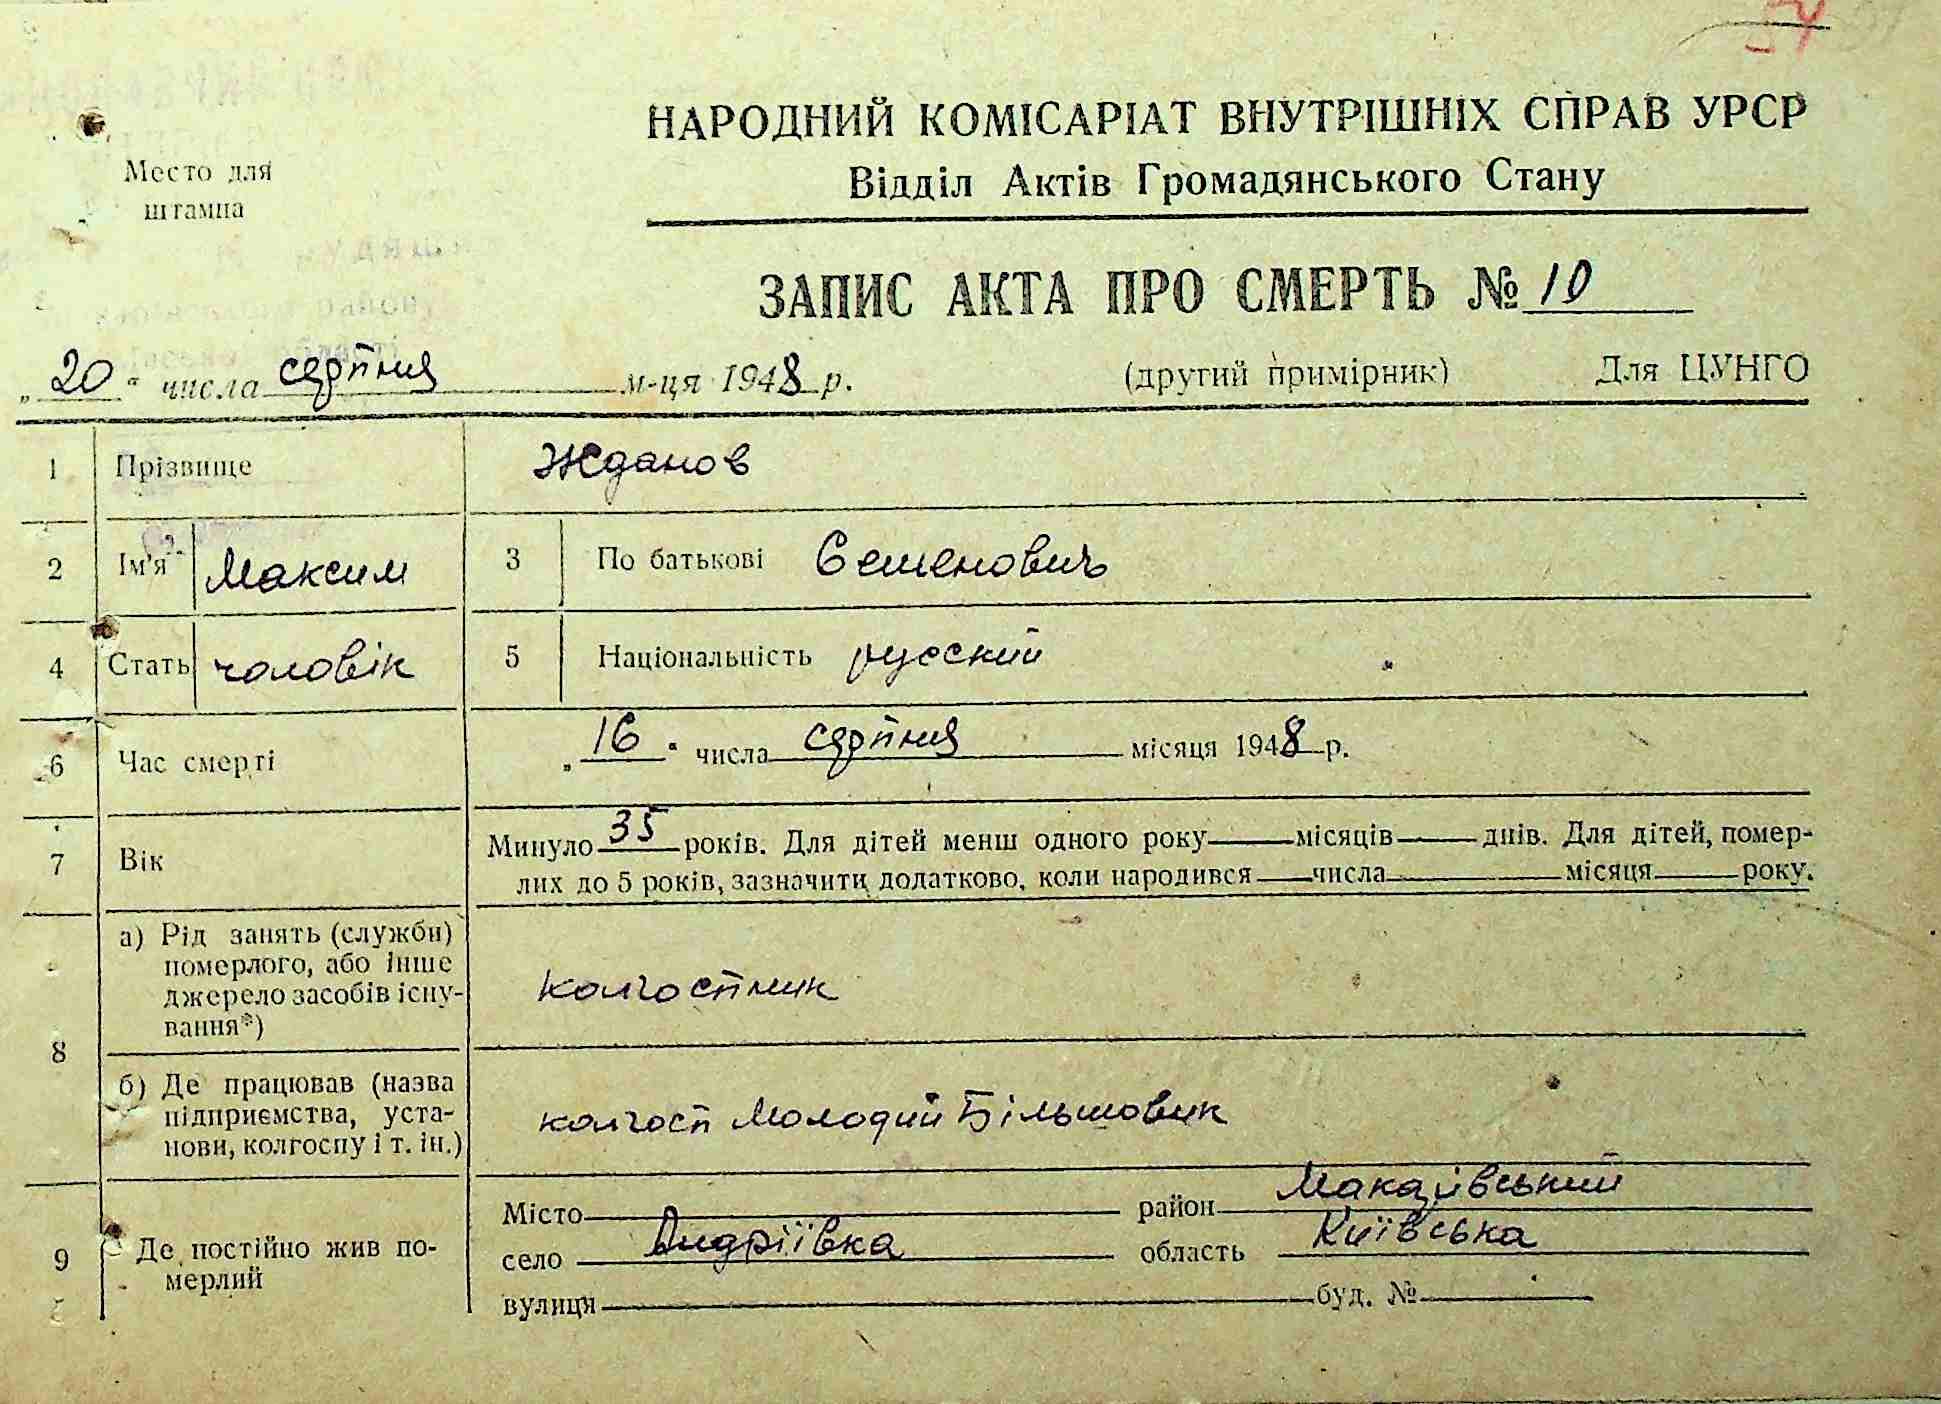 54
НАРОДНИЙ КОМІСАРІАТ ВНУТРІШНІХ СПРАВ УРСР
Место для
штампа
Відділ Актів Громадянського Стану
ЗАПИС АКТА ПРО СМЕРТЬ № 10
„20“ числа серпня м-ця 1948 р. (другий примірник) Для ЦУНГО
1 Прізвище Жданов
2 Ім'я Максим 3 По батькові Семенович
4 Стать чоловік 5 Національність русский
6 Час смерті „16“ числа серпня місяця 1948 р.
7 Вік Минуло 35 років. Для дітей менш одного року місяців днів. Для дітей, помер-
лих до 5 років, зазначити додатково, коли народився числа місяця року.
8 а) Рід занять (служби)
померлого, або інше
джерело засобів існу-
вання*)
колгоспник
б) Де працював (назва
підприємства, уста-
нови, колгоспу і т. ін.)
колгосп Молодий Більшовик
9 Де постійно жив по-
мерлий
Місто район Макарівський
село Андріївка область Київська
вулиця буд. №